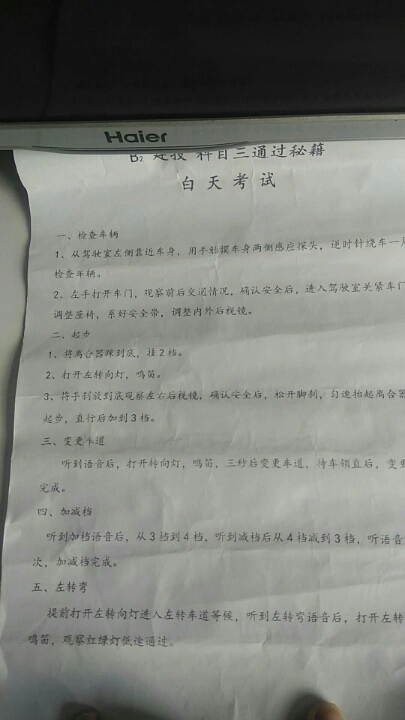 Haier
科目三通过秘籍
白天考试
一、检查车辆
1、从驾驶室左侧靠近车身，用手触摸车身两侧感应探头，逆时针绕车一
检查车辆。
2、左手打开车门，观察前后交通情况，确认安全后，进入驾驶室关紧车门
调整座椅，系好安全带，调整内外后视镜。
二、起步
1、将离合器踩到底，挂2档。
2、打开左转向灯，鸣笛。
3、将手刹放到底观察左右后视镜，确认安全后，松开脚制，匀速抬起离合器
起步，直行后加到3档。
三、变更车道
听到语音后，打开转向灯，鸣笛，三秒后变更车道，待车领直后，变
完成。
四、加减档
听到加档语音后，从3档到4档，听到减档后从4档减到3档，听语音
次，加减档完成。
五、左转弯
提前打开左转向灯进入左转车道等候，听到左转弯语音后，打开左转
鸣笛，观察红绿灯低速通过。